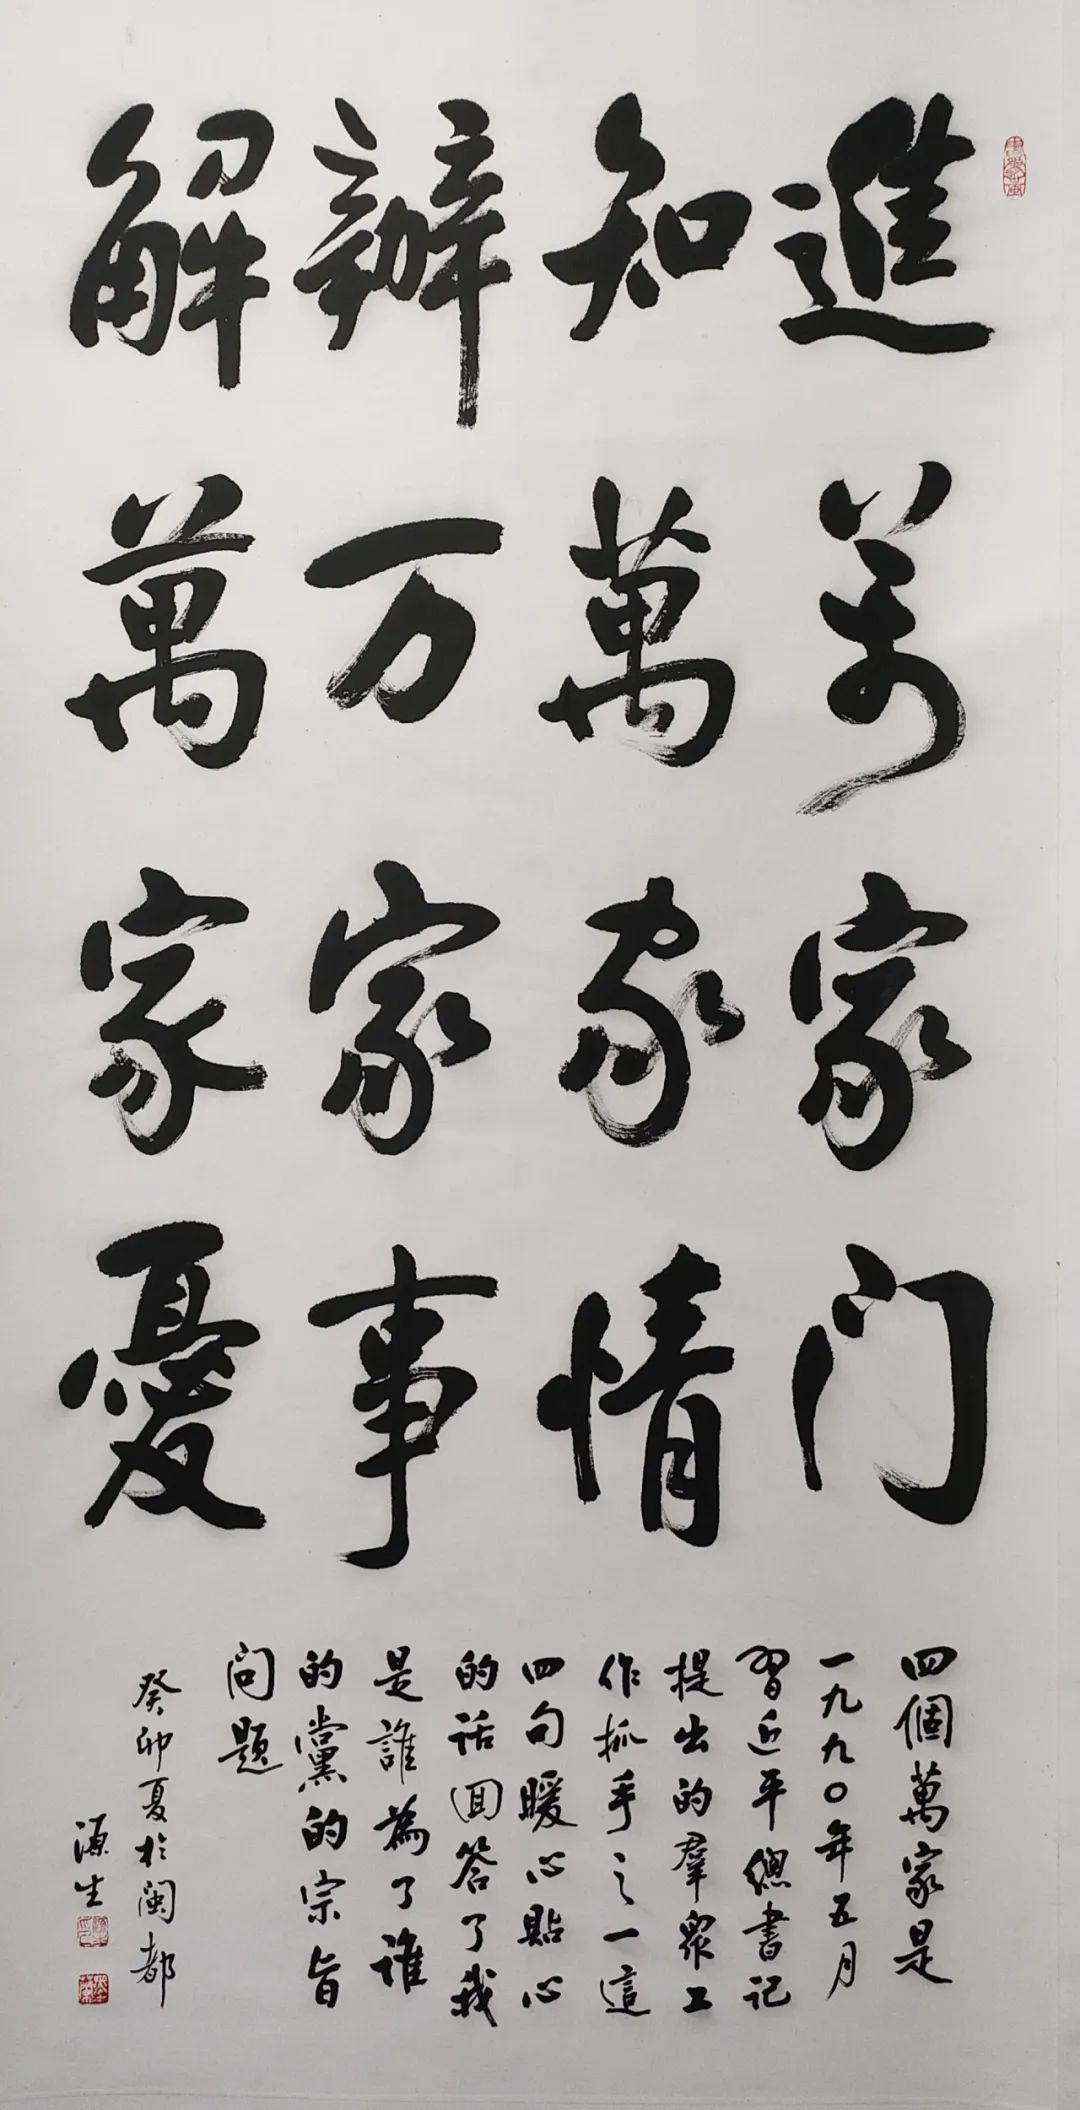 進萬家门
知萬家情
辦万家事
解萬家憂
四個萬家是
一九九〇年五月
習近平總書记
提出的羣眾工
作抓手之一這
四句暖心貼心
的话回答了我
是誰為了谁
的黨的宗旨
问题
癸卯夏於閩都
源生